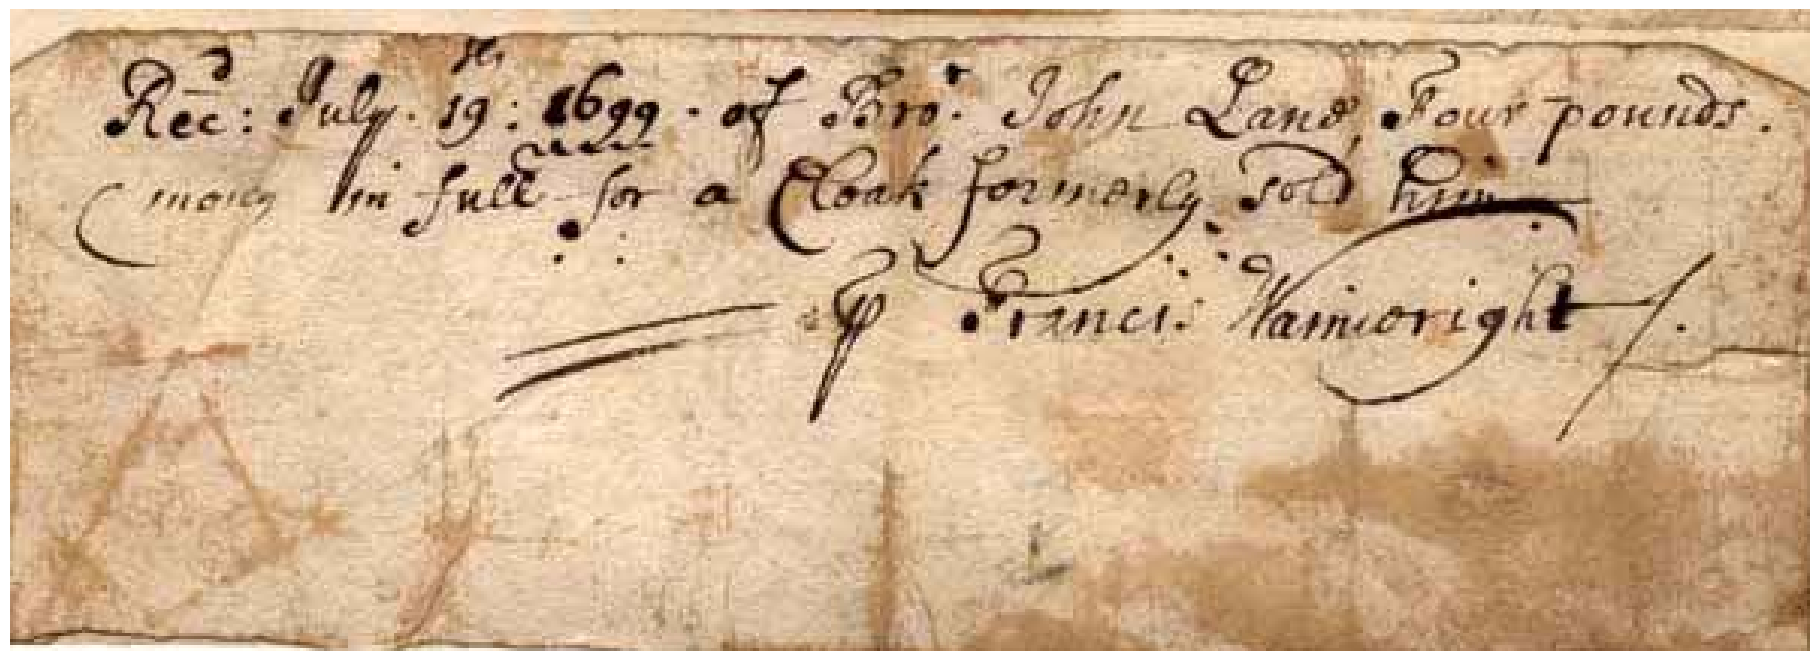 Rec̄d: July. 19th: 1699. of Bror. John Lane, Four pounds.
mony in full for a Cloak formerly sold him
⅌ Francis Wainwright.